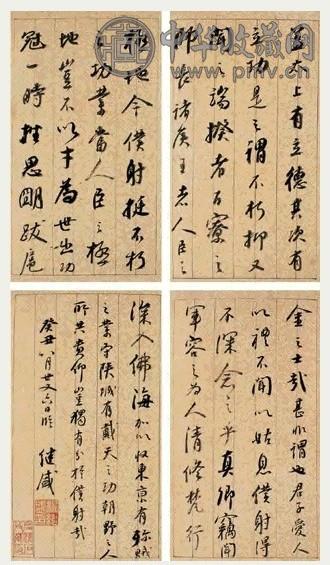 蓋太上有立德其次有
立功是之謂不朽抑又
聞之端揆者百寮之
師長諸侯王者人臣之
極地今僕射挺不朽
之功業當人臣之極
地豈不以才為世出功
冠一時挫思明跋扈
金之士哉甚非謂也君子愛人
以禮不聞以姑息僕射得
不深念之乎真卿竊聞
軍容之為人清修梵行
深入佛海加以收東京有殄賊
之業守陝城有戴天之功朝野之人
所共貴仰豈獨有分於僕射哉
癸丑八月廿又六日臨
中华收藏网